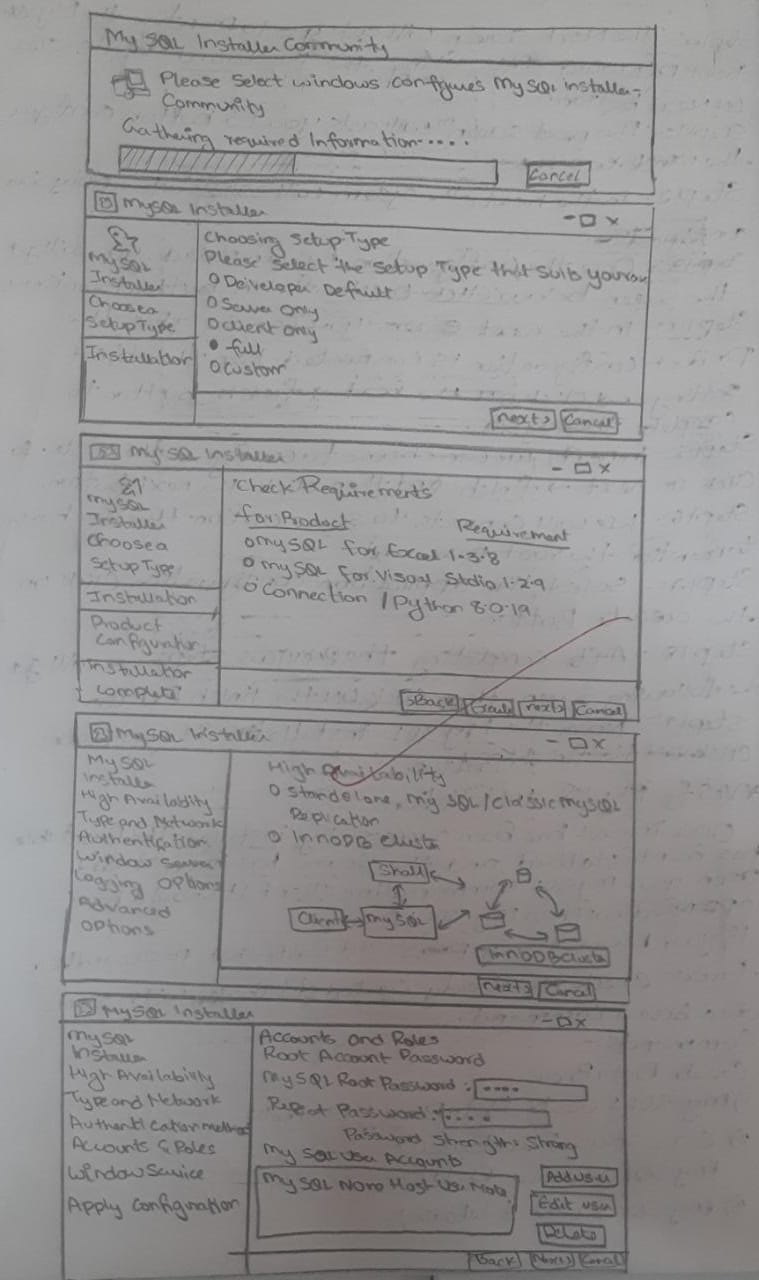 My SQL Installer Community
Please Select windows configures MySQL installer-
Community
Gathering required Information....
Cancel
MySQL Installer
MySQL
Installer
Choose a
Setup Type
Installation
Choosing Setup Type
Please Select the Setup Type that suits your
Developer Default
Server Only
Client Only
full
Custom
next> Cancel
My SQL Installer
MySQL
Installer
Choose a
Setup Type
Installation
Product
Configuration
Installation
Complete
Check Requirements
for Product Requirement
MySQL for Excel 1.3.8
MySQL for Visual Stdio 1.2.9
Connection / Python 8.0.19
Back next> Cancel
MySQL Installer
MySQL
Installer
High Availability
Type and Network
Authentification
Window Server
Logging Options
Advanced
Options
High Availability
Standalone, My SQL / classic MySQL
Replication
InnoDB Cluster
Shall
Client MySQL
InnoDB Cluster
next> Cancel
MySQL Installer
MySQL
Installer
High Availability
Type and Network
Authentication method
Accounts & Roles
Window Service
Apply Configuration
Accounts and Roles
Root Account Password
MySQL Root Password :
Repeat Password :
Password Strength: Strong
My SQL User Accounts
MySQL Host
Add user
Edit user
Delete
Back Next> Cancel